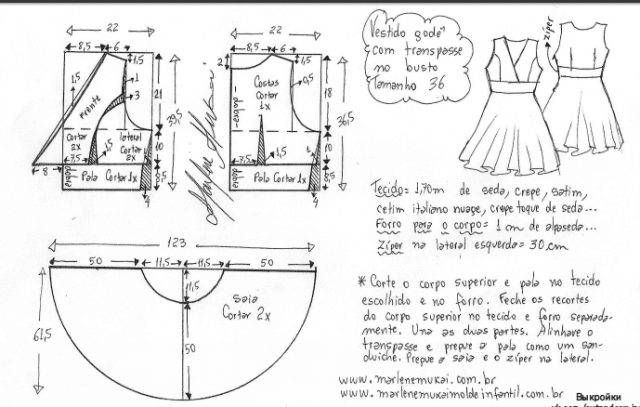 22
8,5 6
1,5
1,5
1
3
21
39,5
Frente
Cortar
2x
lateral
Cortar
2x
10
7,5
1,5
8
dobra
Pala Cortar 1x
8,5
4
22
8,5 6
2
1,5
Costas
Cortar
1x
0,5
18
36,5
dobra
10
7,5
1,5
1
dobra
Pala Cortar 1x
8,5
4
Marlene Mukai
Vestido godê
com transpasse
no busto
Tamanho 36
zíper
Tecido= 1,70m de seda, crepe, satim,
cetim italiano nuage, crepe toque de seda...
Forro para o corpo= 1 cm de alpaseda...
Zíper na lateral esquerda= 30 cm
123
50 11,5 11,5 50
11,5
61,5
Saia
Cortar 2x
50
* Corte o corpo superior e pala no tecido
escolhido e no forro. Feche os recortes
do corpo superior no tecido e forro separada-
mente. Una as duas partes. Alinhave o
transpasse e pregue a pala como um san-
duíche. Pregue a saia e o zíper na lateral.
www.marlenemukai.com.br
www.marlenemukaimoldeinfantil.com.br
Выкройки